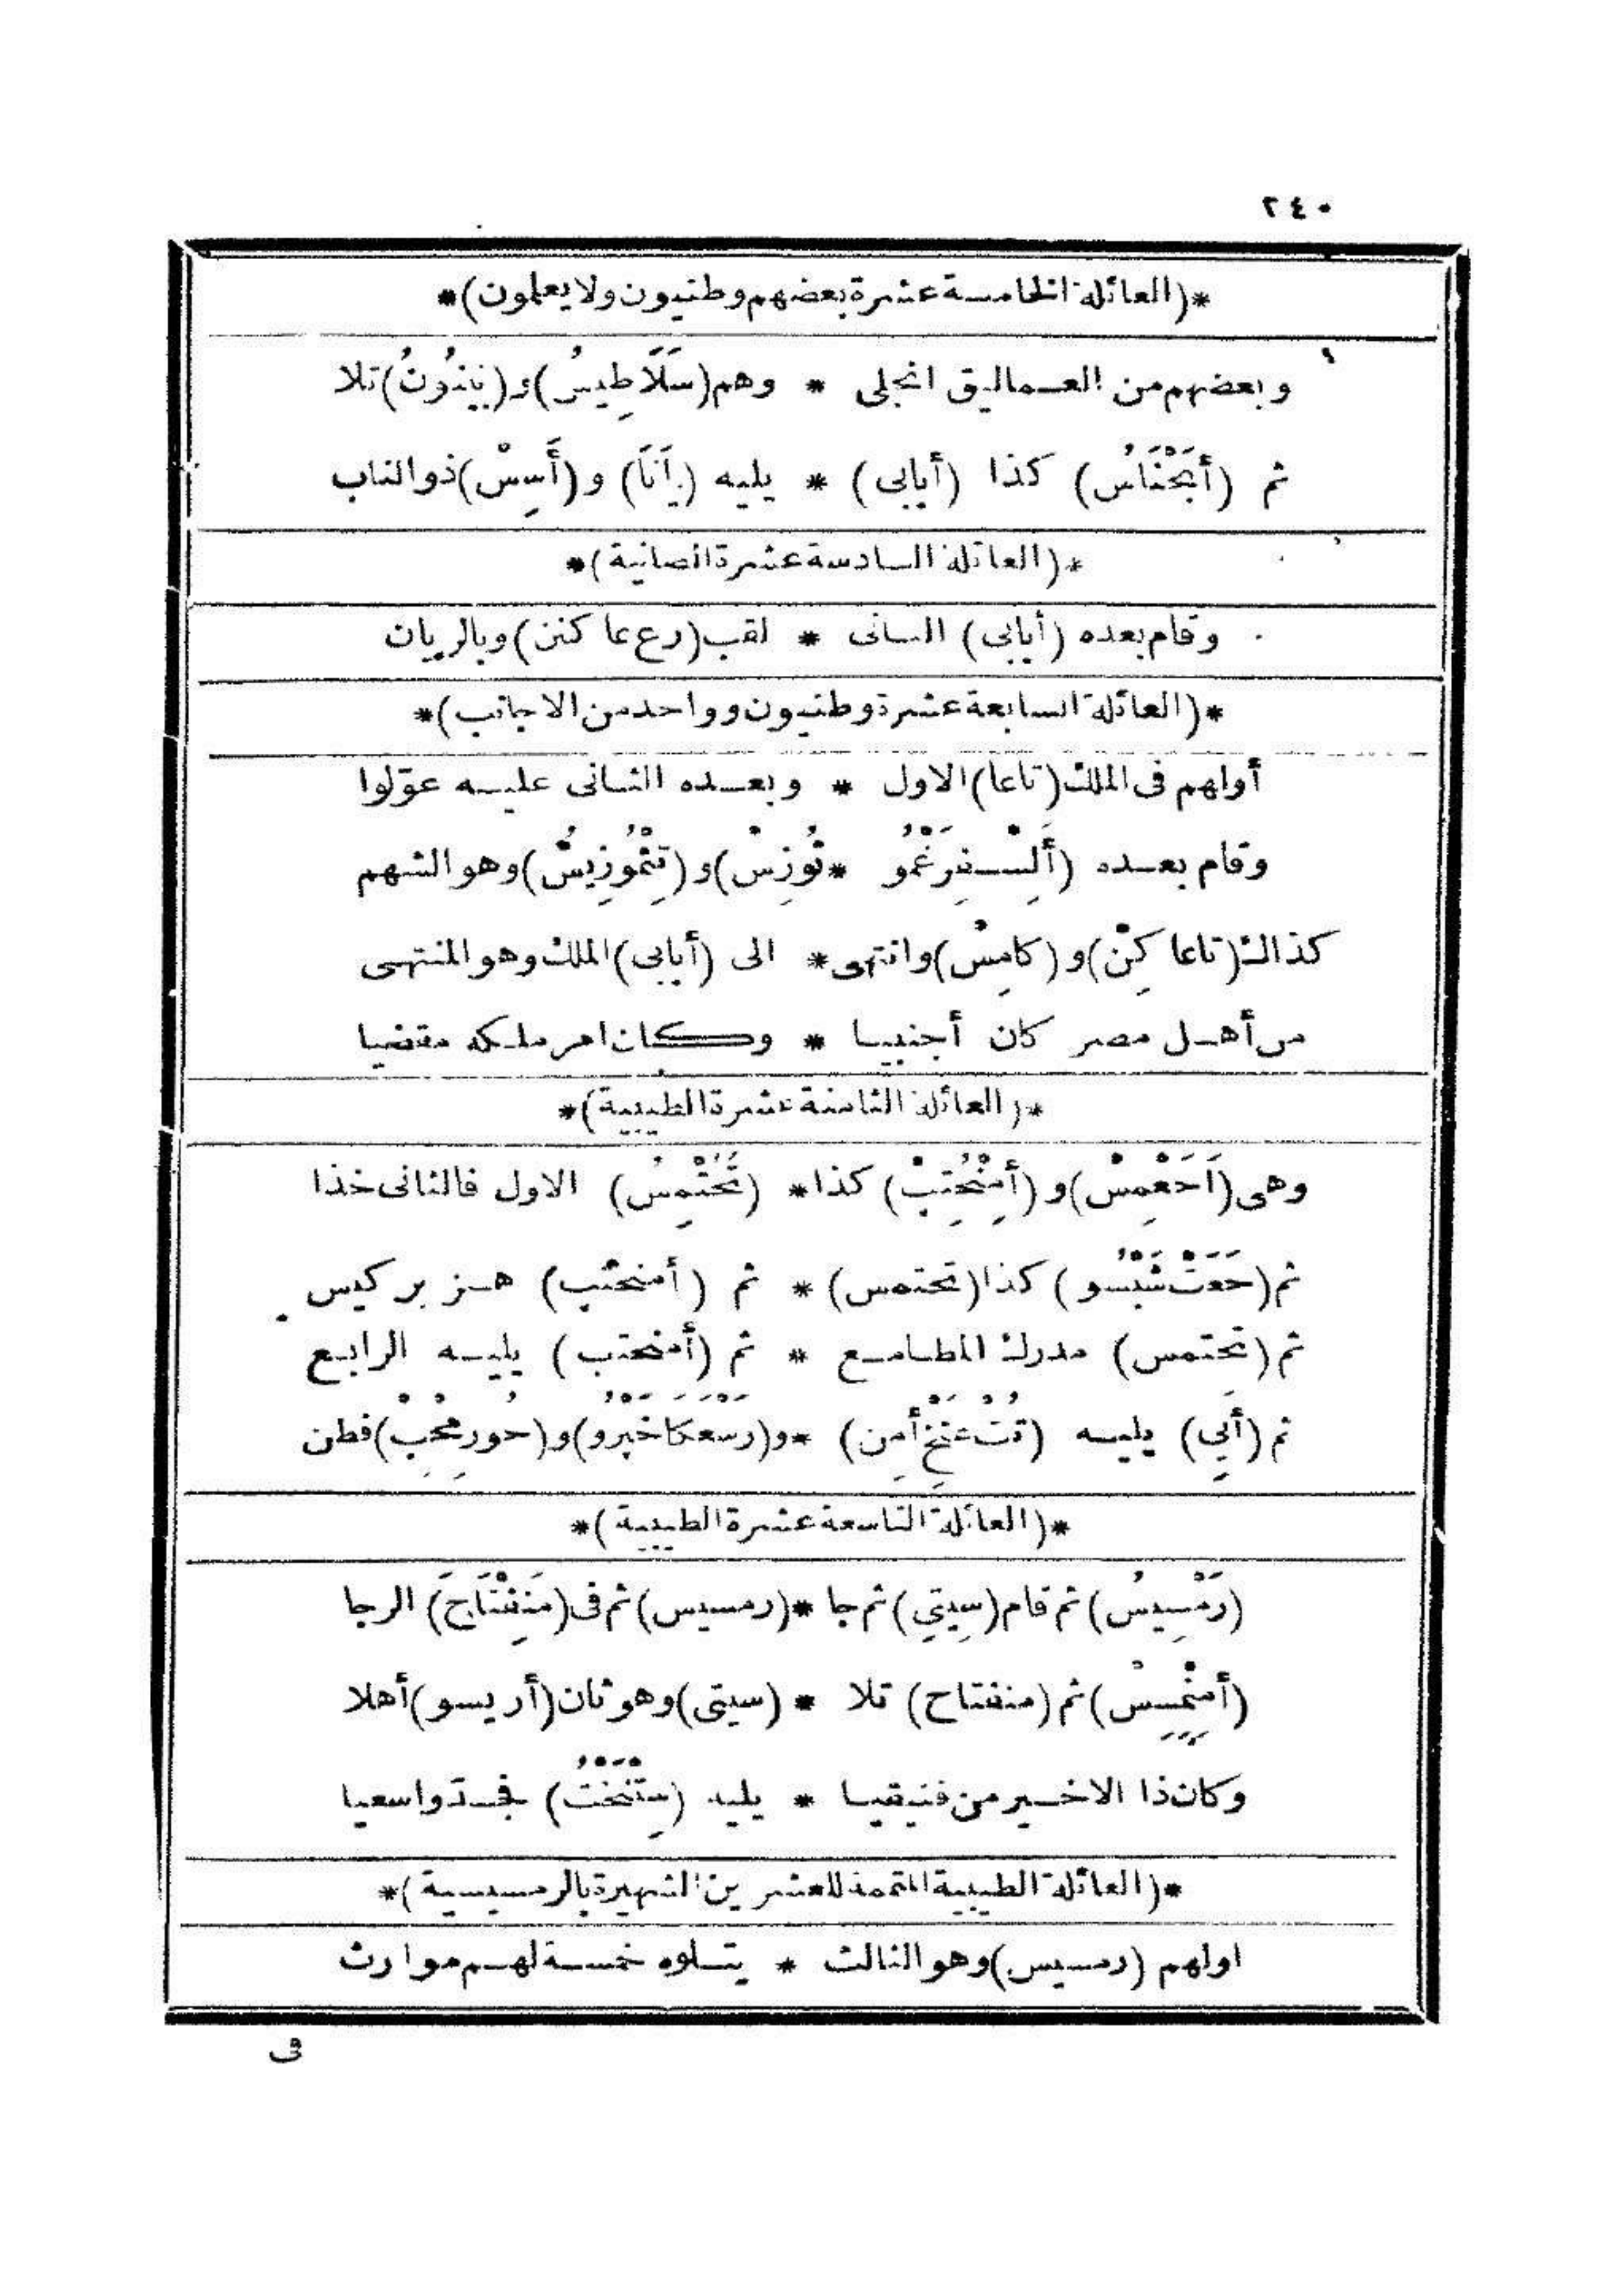 ٢٤٠
*(العائلة الخامسة عشرة بعضهم وطنيون ولا يعلمون)*
وبعضهم من العماليق انجلى * وهم (سَلَاطِيسُ) و(بَيْنُونُ) تلا
ثم (أَبَخْنَاسُ) كذا (أبابى) * يليه (يَآنَا) و(أَسِسْ) ذو الناب
*(العائلة السادسة عشرة الصانية)*
وقام بعده (أبابى) الثانى * لقب (رع عا كنن) وبالريان
*(العائلة السابعة عشرة وطنيون وواحد من الاجانب)*
أولهم فى الملك (تاعا) الاول * وبعده الثانى عليه عوّلوا
وقام بعده (أَلِسْفِرَغْمُو * تُوزِسْ) و(تِتْمُوزِيسُ) وهو الشهم
كذالك (تاعا كِنْ) و(كامِسْ) وانتهى * الى (أبابى) الملك وهو المنتهى
من أهل مصر كان أجنبيا * وكان امر ملكه مقضيا
*(العائلة الثامنة عشرة الطيبية)*
وهى (اَحَعْمِسْ) و(أَمِنْحُتِبْ) كذا * (تُحُتْمِسُ) الاول فالثانى خذا
ثم (حَعَتْ شَبْسُو) كذا (تحتمس) * ثم (أمنحتب) هزبر كيس
ثم (تحتمس) مدرك المطامع * ثم (أمنحتب) يليه الرابع
ثم (أَبِي) يليه (تُتْ عَنْخِ أَمِن) * و(رَسْعَكَا خَپْرُو) و(حُورمْحِبْ) فطن
*(العائلة التاسعة عشرة الطيبية)*
(رَمْسِيسُ) ثم قام (سِيتِي) ثم جا * (رمسيس) ثم فى (مَنِفْتَاحَ) الرجا
(أَمِنْمِسِسْ) ثم (منفتاح) تلا * (سيتى) وهو ثان (أريسو) أهلا
وكان ذا الاخير من فنيقيا * يليه (سِتْنَخْتُ) فجدّ واسعيا
*(العائلة الطيبية المتممة للعشرين الشهيرة بالرمسيسية)*
اولهم (رمسيس) وهو الثالث * يتلوه خمسة لهم موارث
فى